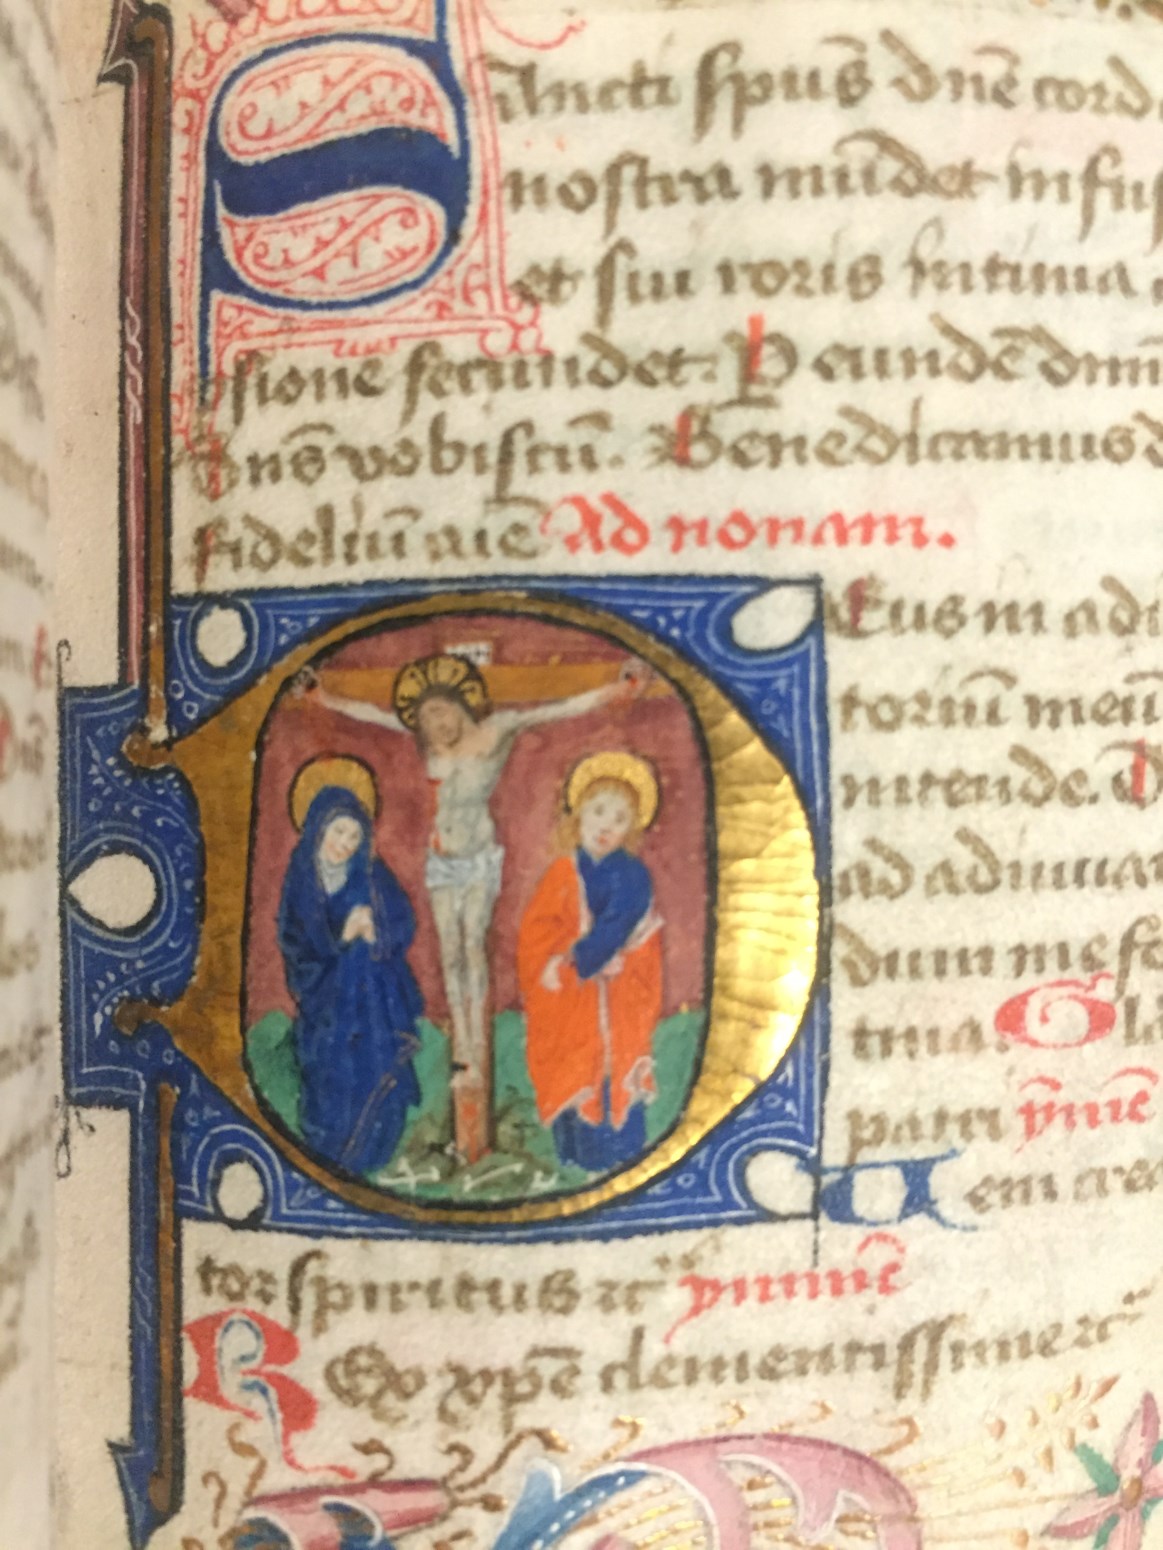 Sancti sp̅us dn̅e cord
nostra mu̅det infus
et sui roris intima
sione fecundet. P eunde̅ dnm̅
Dn̅s vobiscu̅. Benedicamus d
fideliu̅ aīe Ad nonam.
Deus in adi
toriu̅ meu̅
intende. D
ad adiuua
dum me fe
tina. Gl
patri ymne
Uem crea
tor spiritus ꝛc ymne
Rex xp̅e clementissime ꝛc